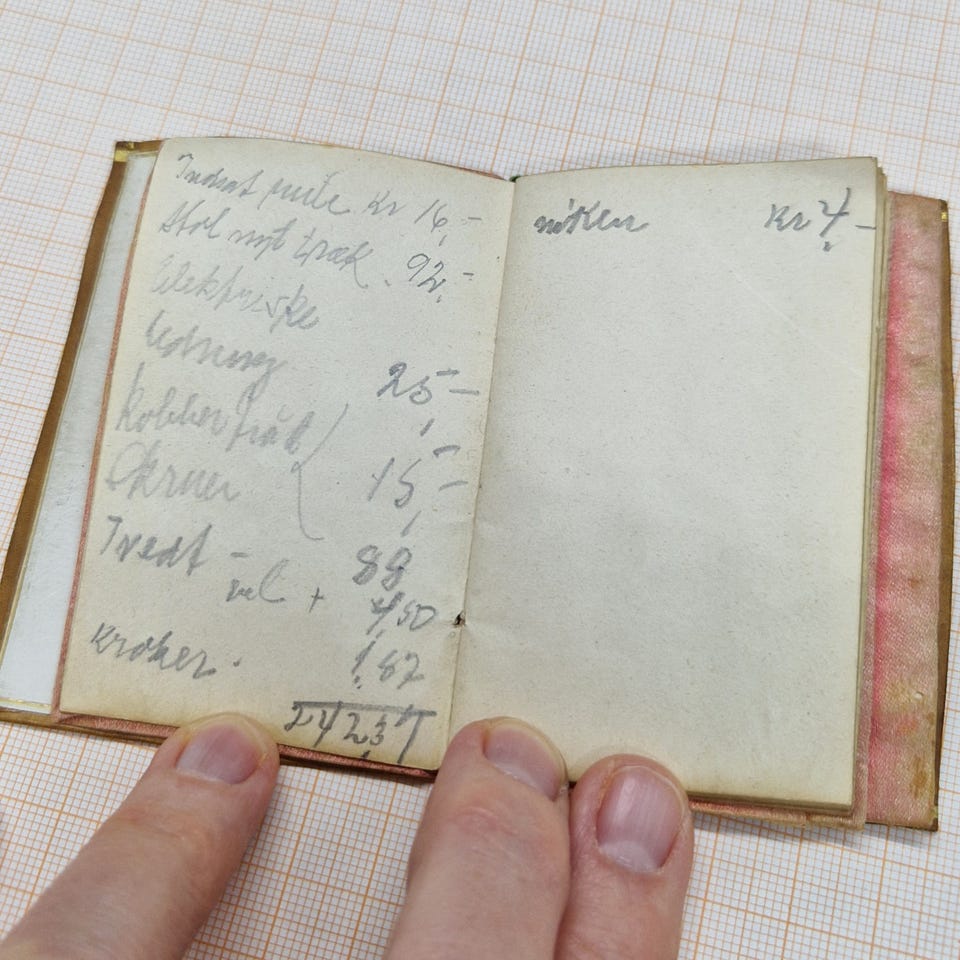 Indsat pute Kr 16,-
Stol nyt træk. 92,-
Elektriske
Ledning 25,-
Kobber tråd
Skruer 15,-
Tvedt - 88
vel + 4,50
Kroker. 1,87
242,37
Kr 4,-